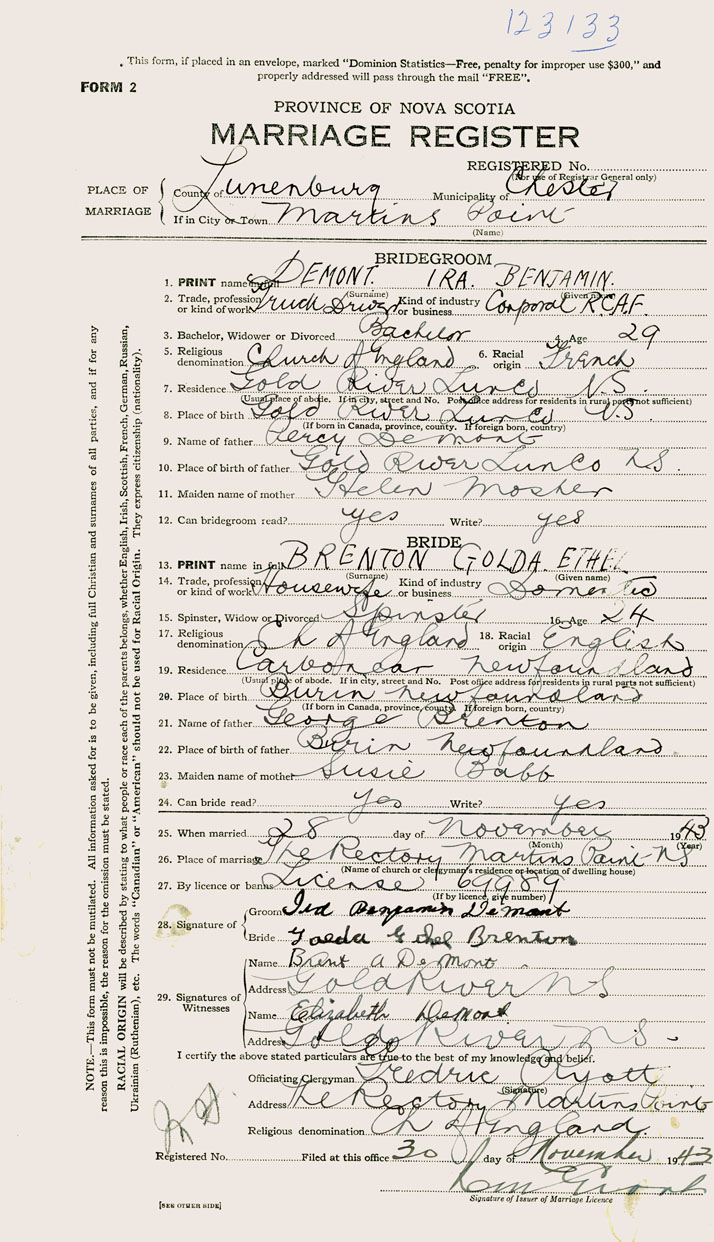 123133
This form, if placed in an envelope, marked "Dominion Statistics—Free, penalty for improper use $300," and
properly addressed will pass through the mail "FREE".
FORM 2
PROVINCE OF NOVA SCOTIA
MARRIAGE REGISTER
REGISTERED No.
(For use of Registrar General only)
PLACE OF MARRIAGE
County of Lunenburg Municipality of Chester
If in City or Town Martins Point
(Name)
BRIDEGROOM
1. PRINT name in full DEMONT. IRA. BENJAMIN.
(Surname) (Given name)
2. Trade, profession or kind of work Truck Driver Kind of industry or business Corporal RCAF.
3. Bachelor, Widower or Divorced Bachelor 4. Age 29
5. Religious denomination Church of England 6. Racial origin French
7. Residence Gold River Lun Co N.S.
(Usual place of abode. If in city, street and No. Post office address for residents in rural parts not sufficient)
8. Place of birth Gold River Lun Co N.S.
(If born in Canada, province, county. If foreign born, country)
9. Name of father Percy Demont
10. Place of birth of father Gold River Lun Co N S.
11. Maiden name of mother Helen Mosher
12. Can bridegroom read? yes Write? yes
BRIDE
13. PRINT name in full BRENTON GOLDA. ETHEL
(Surname) (Given name)
14. Trade, profession or kind of work Housewife Kind of industry or business Domestic
15. Spinster, Widow or Divorced Spinster 16. Age 24
17. Religious denomination Ch of England 18. Racial origin English
19. Residence Carbonear Newfoundland
(Usual place of abode. If in city, street and No. Post office address for residents in rural parts not sufficient)
20. Place of birth Burin Newfoundland
(If born in Canada, province, county. If foreign born, country)
21. Name of father George Brenton
22. Place of birth of father Burin Newfoundland
23. Maiden name of mother Susie Babb
24. Can bride read? Yes Write? yes
25. When married 28 day of November 1943
(Month) (Year)
26. Place of marriage The Rectory Martins Point NS
(Name of church or clergyman's residence or location of dwelling house)
27. By licence or banns License 69989
(If by licence, give number)
28. Signature of
Groom Benjamin DeMont
Bride Golda Ethel Brenton
29. Signatures of Witnesses
Name Brent A DeMont
Address Gold River N S
Name Elizabeth DeMont
Address Gold River N S
I certify the above stated particulars are true to the best of my knowledge and belief.
Officiating Clergyman Fredric Ryott
(Signature)
Address The Rectory Martins Point
Religious denomination Ch of England.
Registered No. Filed at this office 30 day of November 1943
Signature of Issuer of Marriage Licence
[SEE OTHER SIDE]
NOTE.—This form must not be mutilated. All information asked for is to be given, including full Christian and surnames of all parties, and if for any
reason this is impossible, the reason for the omission must be stated.
RACIAL ORIGIN will be described by stating to what people or race each of the parents belongs, whether English, Irish, Scottish, French, German, Russian,
Ukrainian (Ruthenian), etc. The words "Canadian" or "American" should not be used for Racial Origin. They express citizenship (nationality).